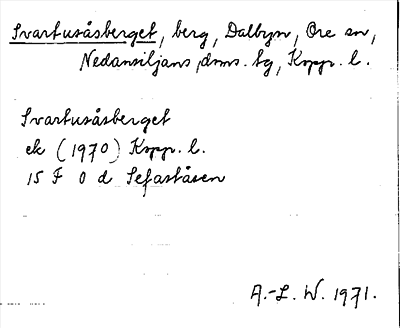 Svartusåsberget, berg, Dalbyn, Ore sn,
Nedansiljans dms. tg, Kopp. l.
Svartusåsberget
ek (1970) Kopp. l.
15 F 0 d Sefaståsen
A.-L. W. 1971.